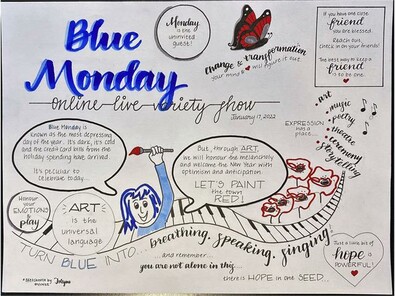 Blue
Monday
online live variety show
January 17, 2022
Monday
is the
uninvited
guest!
Change & transformation
your mind & will figure it out.
If you have one
friend
you are blessed.
Reach out,
check in on your friends!
The best way to keep a
friend
is to be one.
Blue Monday is
known as the most depressing
day of the year. It's dark, it's cold
and the credit card bills from the
holiday spending have arrived.
It's peculiar to
celebrate today...
But, through ART,
we will honour the melancholy
and welcome the New Year with
optimism and anticipation.
LET'S PAINT
the town
RED!
EXPRESSION
has a
PLACE...
art
music
poetry
theatre
ceremony
storytelling
Honour
your
EMOTIONS
play
ART
is the
universal
language
TURN BLUE INTO...
breathing. speaking. singing
...and remember...
you are not alone in this...
there is HOPE in one SEED...
Just a little bit of
hope
is
POWERFUL!